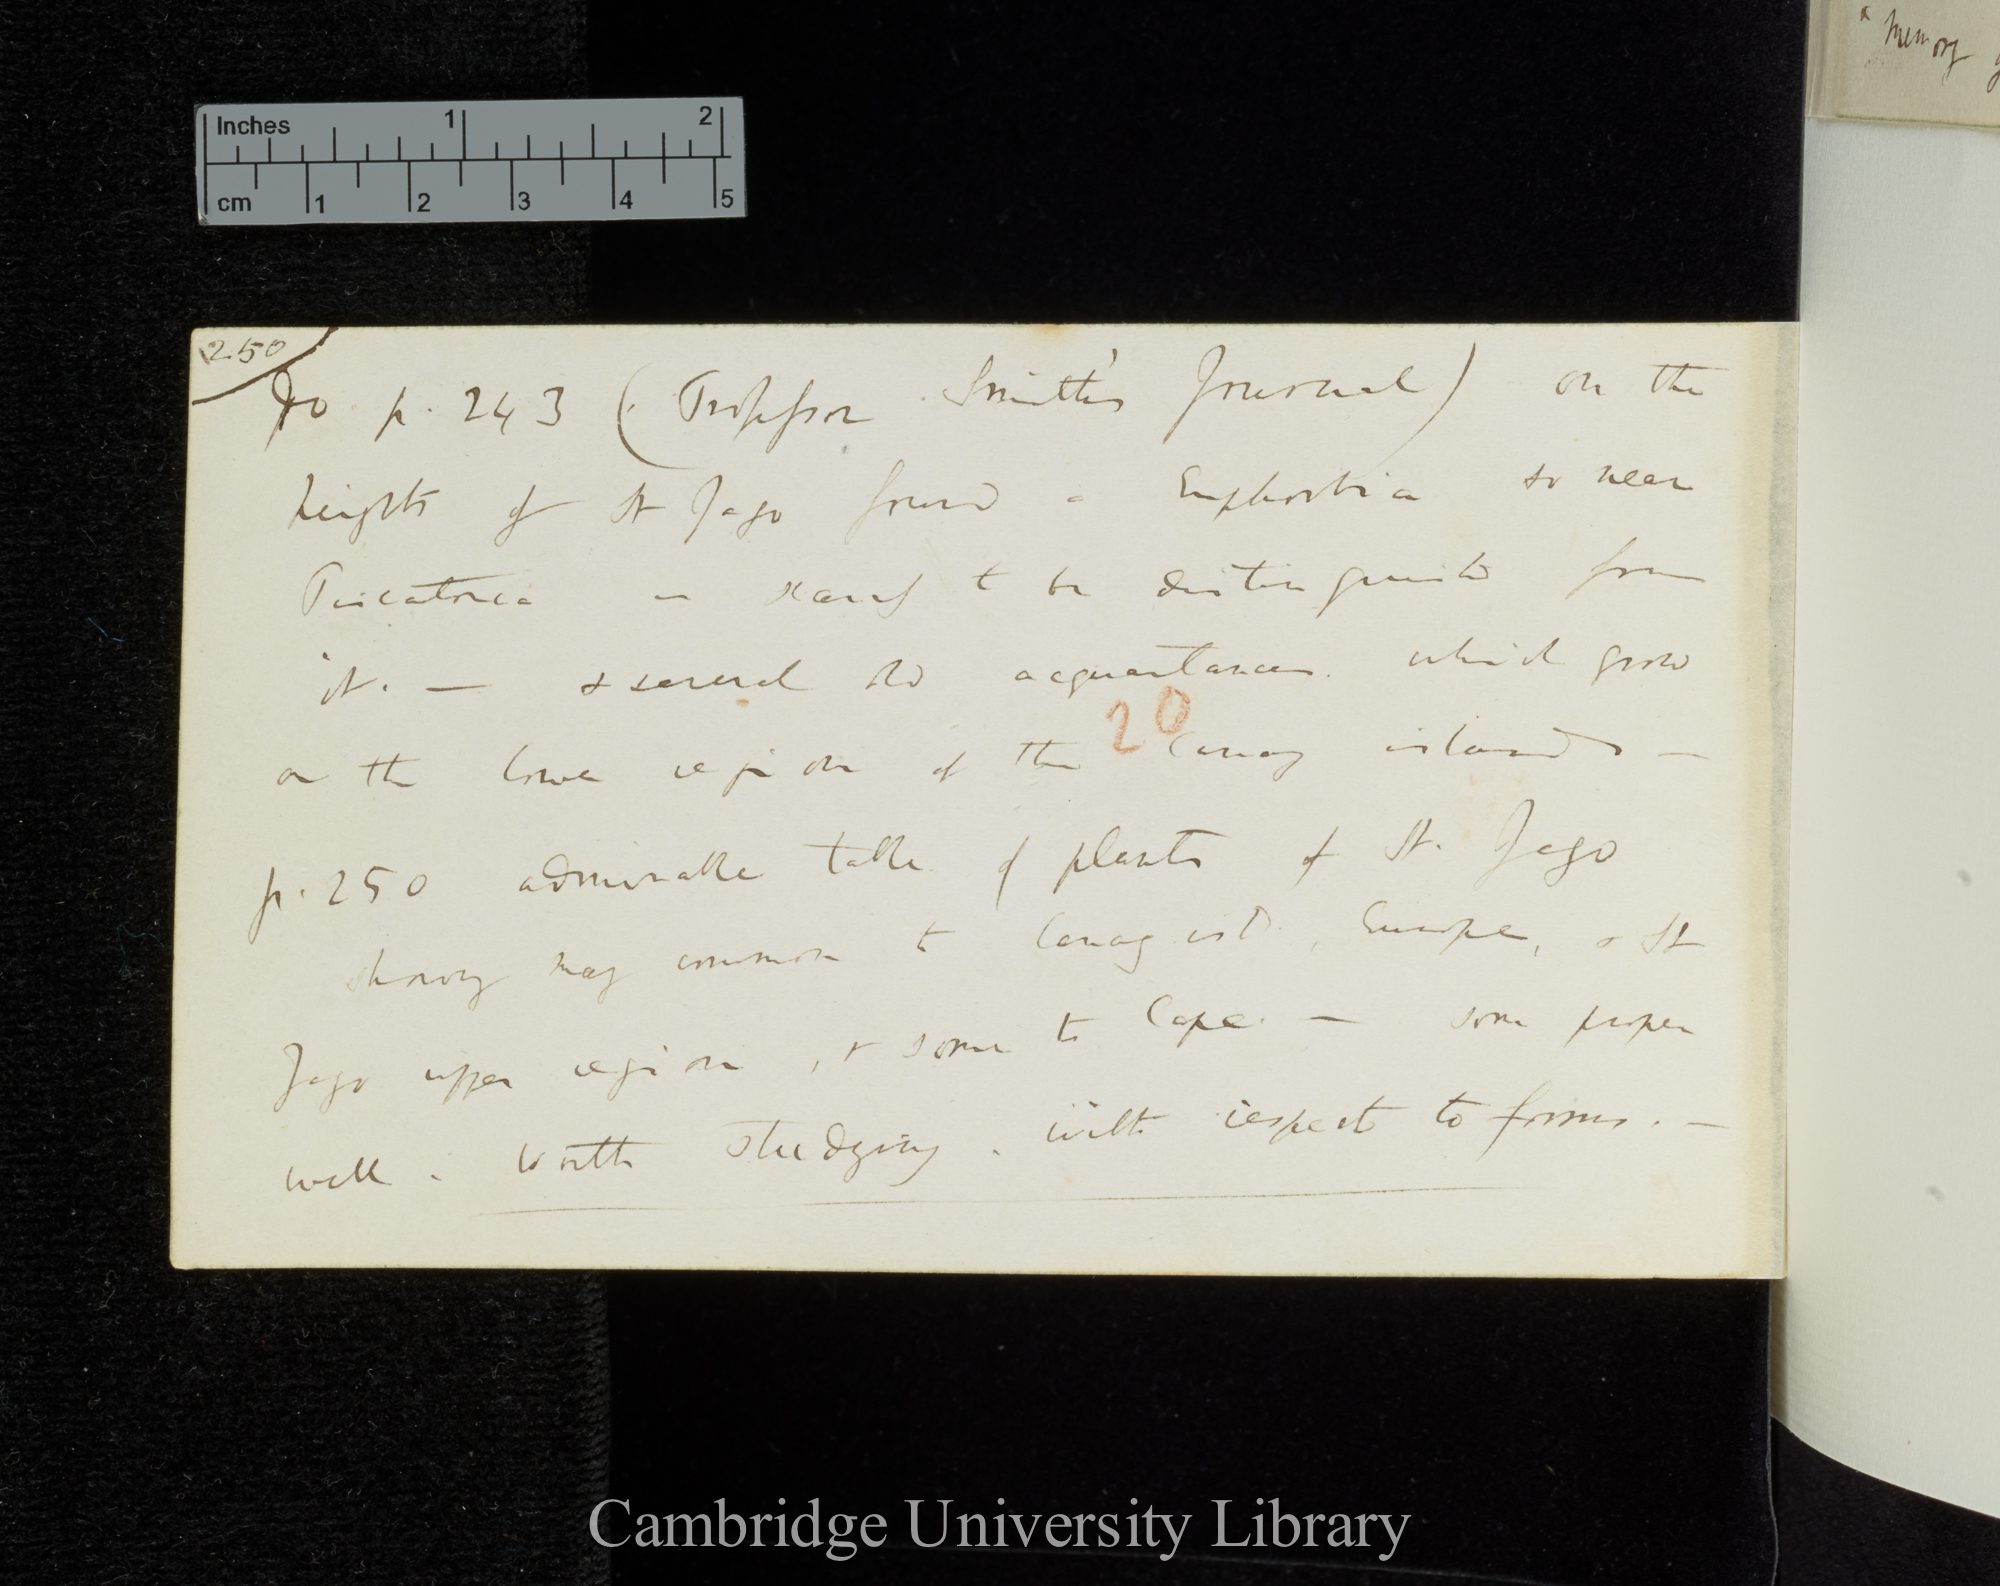 250
do p. 243 (Professor Smith's Journal) on the
heights of St Jago found a Euphorbia so near
Piscatoria as scarcely to be distinguished from
it. — & several old acquaintances which grow
on the lower region of the Canary islands —
20
p. 250 admirable table of plants of St. Jago
showing many common to Canary isld, Europe, & St
Jago upper region, & some to Cape. — some proper
well. worth studying. with respect to forms. —
a memory
Inches 1 2
cm 1 2 3 4 5
Cambridge University Library